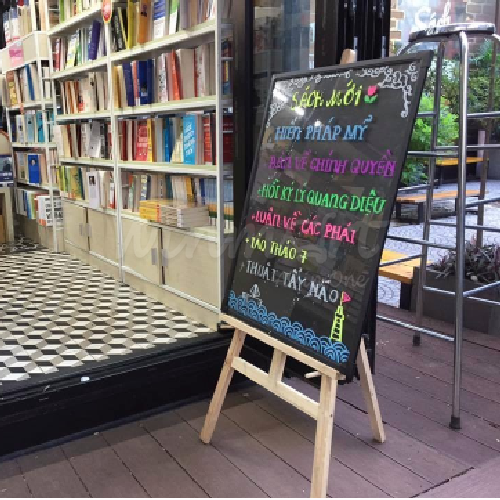 SÁCH MỚI
HIẾN PHÁP MỸ
BÀN VỀ CHÍNH QUYỀN
• HỒI KÝ LÝ QUANG DIỆU
• LUẬN VỀ CÁC PHÁI
• TÀO THÁO 7
• THOÁT TẨY NÃO